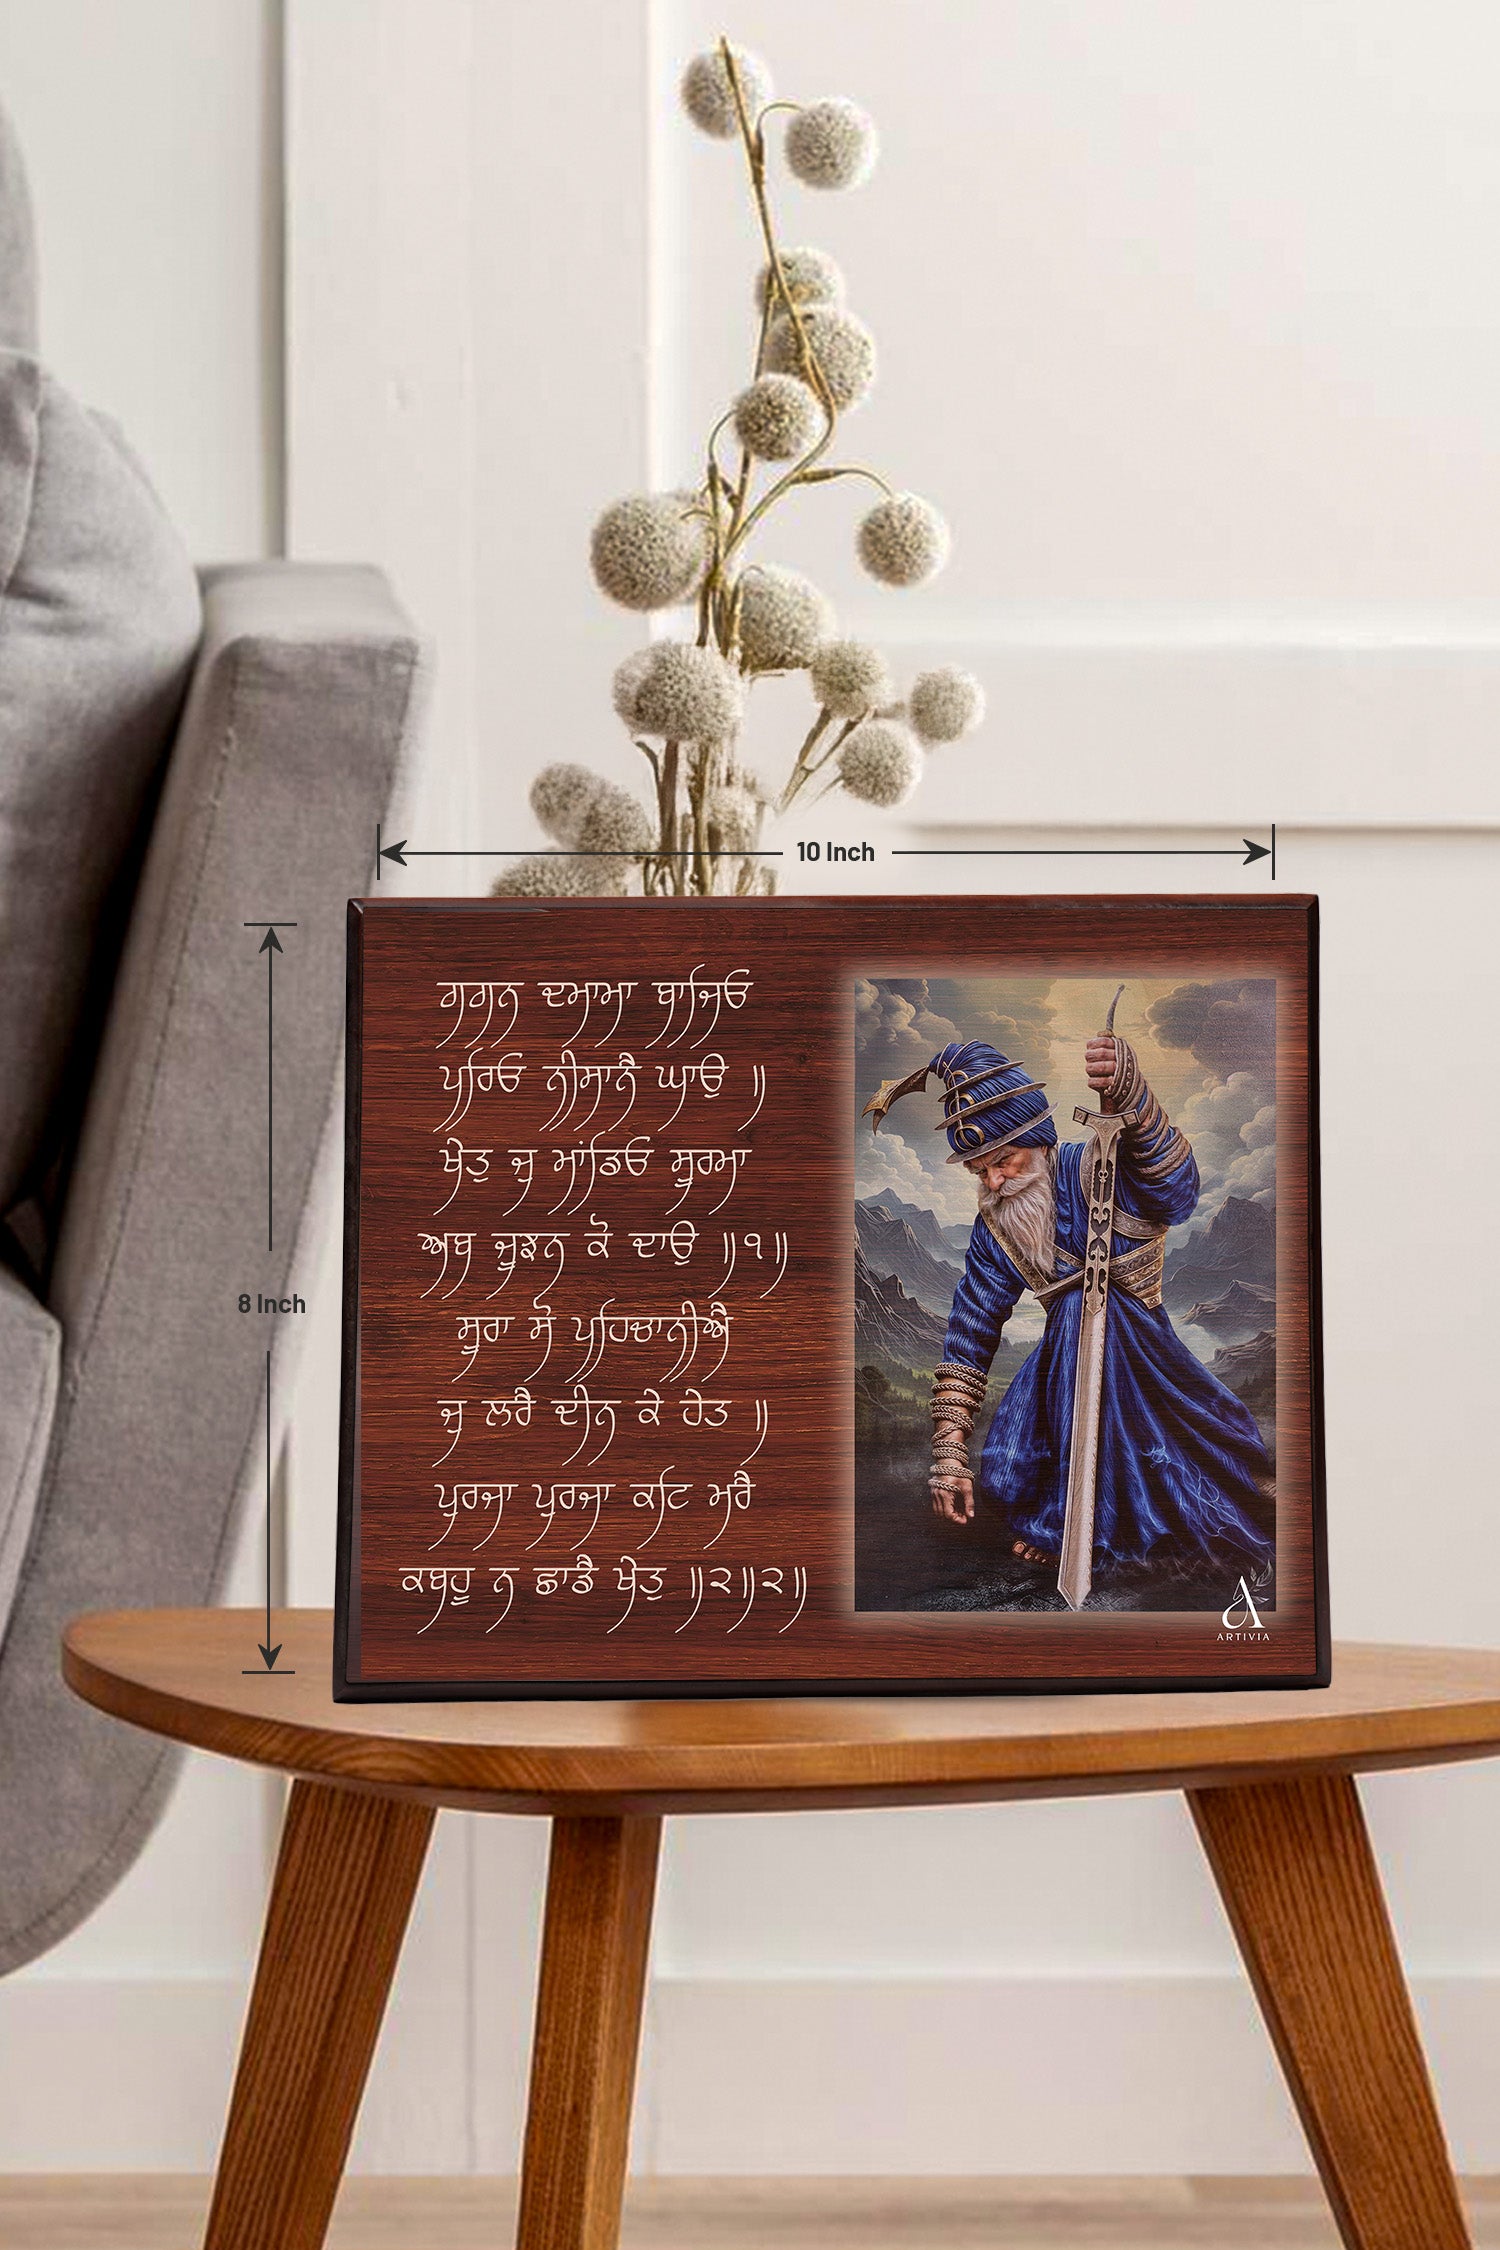 10 Inch
8 Inch
ਗਗਨ ਦਮਾਮਾ ਬਾਜਿਓ
ਪਰਿਓ ਨੀਸਾਨੈ ਘਾਉ ॥
ਖੇਤੁ ਜੁ ਮਾਂਡਿਓ ਸੂਰਮਾ
ਅਬ ਜੂਝਨ ਕੋ ਦਾਉ ॥੧॥
ਸੂਰਾ ਸੋ ਪਹਿਚਾਨੀਐ
ਜੁ ਲਰੈ ਦੀਨ ਕੇ ਹੇਤ ॥
ਪੁਰਜਾ ਪੁਰਜਾ ਕਟਿ ਮਰੈ
ਕਬਹੂ ਨ ਛਾਡੈ ਖੇਤੁ ॥੨॥੨॥
ARTIVIA